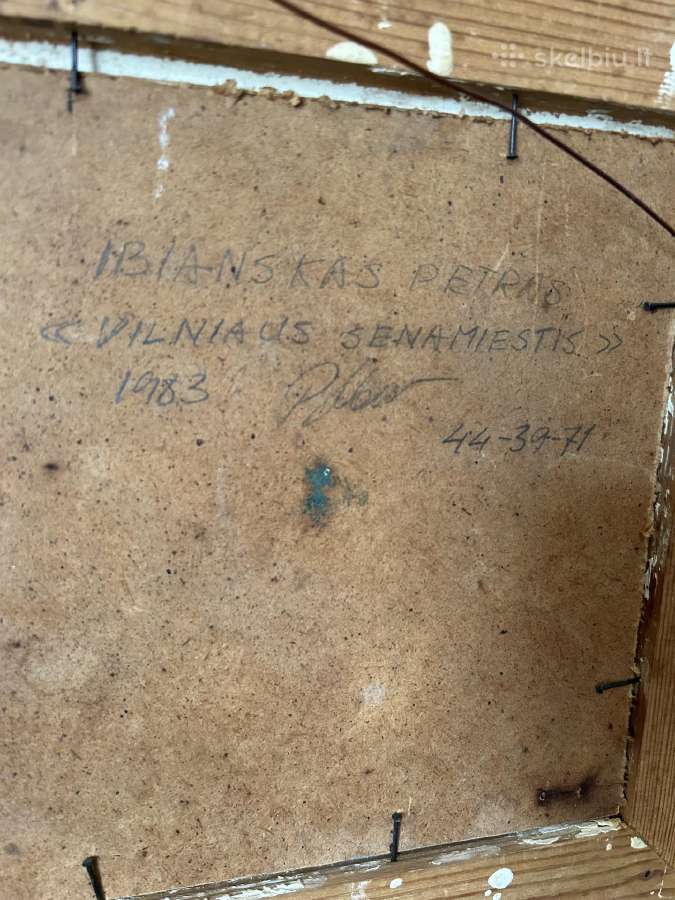 skelbiu.lt
IBIANSKAS PETRAS
« VILNIAUS SENAMIESTIS »
1983
44-39-71